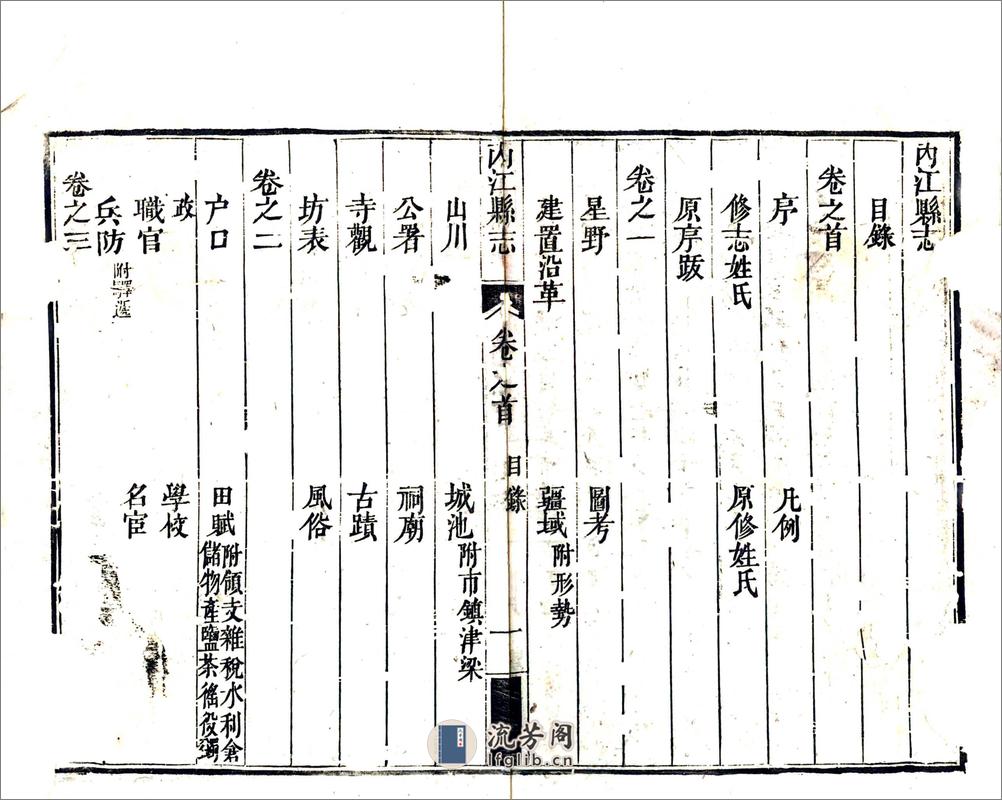 內江縣志
目錄
卷之首
序 凡例
修志姓氏 原修姓氏
原序跋
卷之一
星野 圖考
建置沿革 疆域附形勢
內江縣志 卷之首 目錄 一
山川 城池附市鎮津梁
公署 祠廟
寺觀 古蹟
坊表 風俗
卷之二
戶口 田賦附領支雜稅水利倉
儲物產鹽茶徭役
政 學校
職官 名宦
兵防附驛遞
卷之三
流芳阁
lfglib.cn